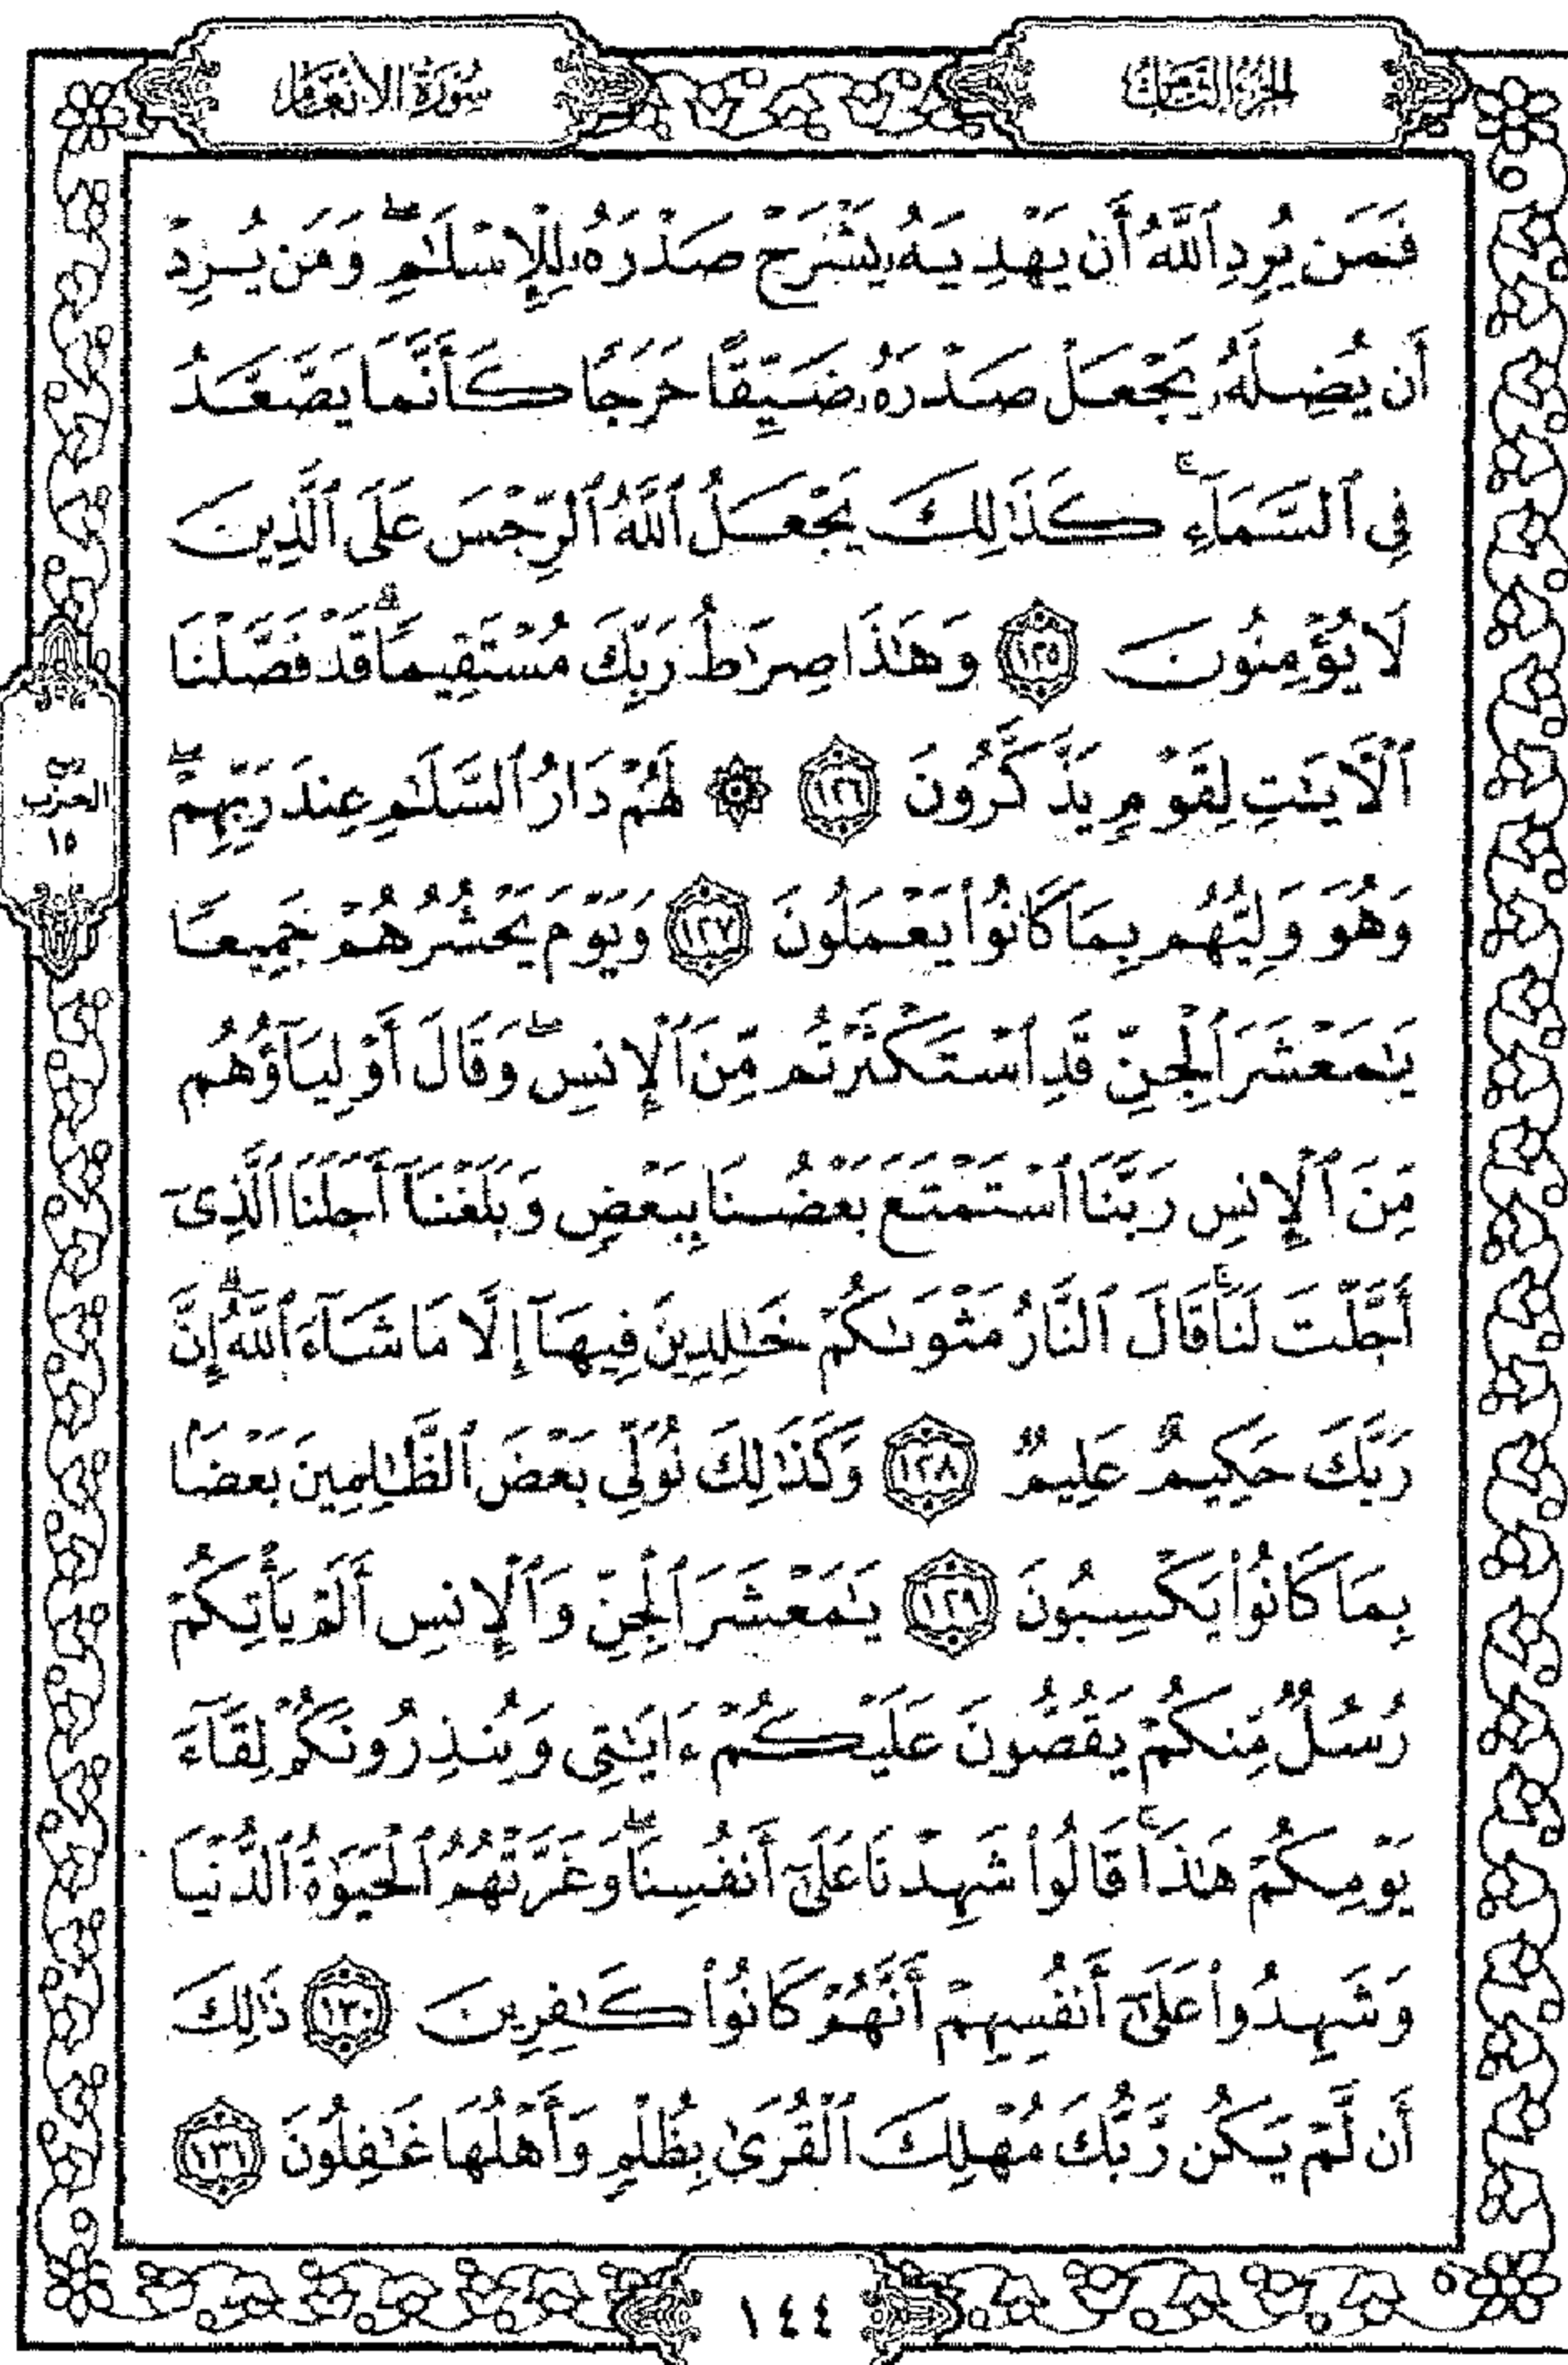 الجزء الثامن
سورة الأنعام
فَمَن يُرِدِ ٱللَّهُ أَن يَهْدِيَهُۥ يَشْرَحْ صَدْرَهُۥ لِلْإِسْلَٰمِ ۖ وَمَن يُرِدْ
أَن يُضِلَّهُۥ يَجْعَلْ صَدْرَهُۥ ضَيِّقًا حَرَجًا كَأَنَّمَا يَصَّعَّدُ
فِي ٱلسَّمَآءِ ۚ كَذَٰلِكَ يَجْعَلُ ٱللَّهُ ٱلرِّجْسَ عَلَى ٱلَّذِينَ
لَا يُؤْمِنُونَ ١٢٥ وَهَٰذَا صِرَٰطُ رَبِّكَ مُسْتَقِيمًا ۗ قَدْ فَصَّلْنَا
ٱلْءَايَٰتِ لِقَوْمٍ يَذَّكَّرُونَ ١٢٦ ۞ لَهُمْ دَارُ ٱلسَّلَٰمِ عِندَ رَبِّهِمْ ۖ
ربع
الحزب
١٥
وَهُوَ وَلِيُّهُم بِمَا كَانُوا۟ يَعْمَلُونَ ١٢٧ وَيَوْمَ يَحْشُرُهُمْ جَمِيعًا
يَٰمَعْشَرَ ٱلْجِنِّ قَدِ ٱسْتَكْثَرْتُم مِّنَ ٱلْإِنسِ ۖ وَقَالَ أَوْلِيَآؤُهُم
مِّنَ ٱلْإِنسِ رَبَّنَا ٱسْتَمْتَعَ بَعْضُنَا بِبَعْضٍ وَبَلَغْنَآ أَجَلَنَا ٱلَّذِىٓ
أَجَّلْتَ لَنَا ۚ قَالَ ٱلنَّارُ مَثْوَىٰكُمْ خَٰلِدِينَ فِيهَآ إِلَّا مَا شَآءَ ٱللَّهُ ۗ إِنَّ
رَبَّكَ حَكِيمٌ عَلِيمٌ ١٢٨ وَكَذَٰلِكَ نُوَلِّى بَعْضَ ٱلظَّٰلِمِينَ بَعْضًۢا
بِمَا كَانُوا۟ يَكْسِبُونَ ١٢٩ يَٰمَعْشَرَ ٱلْجِنِّ وَٱلْإِنسِ أَلَمْ يَأْتِكُمْ
رُسُلٌ مِّنكُمْ يَقُصُّونَ عَلَيْكُمْ ءَايَٰتِى وَيُنذِرُونَكُمْ لِقَآءَ
يَوْمِكُمْ هَٰذَا ۚ قَالُوا۟ شَهِدْنَا عَلَىٰٓ أَنفُسِنَا ۖ وَغَرَّتْهُمُ ٱلْحَيَوٰةُ ٱلدُّنْيَا
وَشَهِدُوا۟ عَلَىٰٓ أَنفُسِهِمْ أَنَّهُمْ كَانُوا۟ كَٰفِرِينَ ١٣٠ ذَٰلِكَ
أَن لَّمْ يَكُن رَّبُّكَ مُهْلِكَ ٱلْقُرَىٰ بِظُلْمٍ وَأَهْلُهَا غَٰفِلُونَ ١٣١
١٤٤